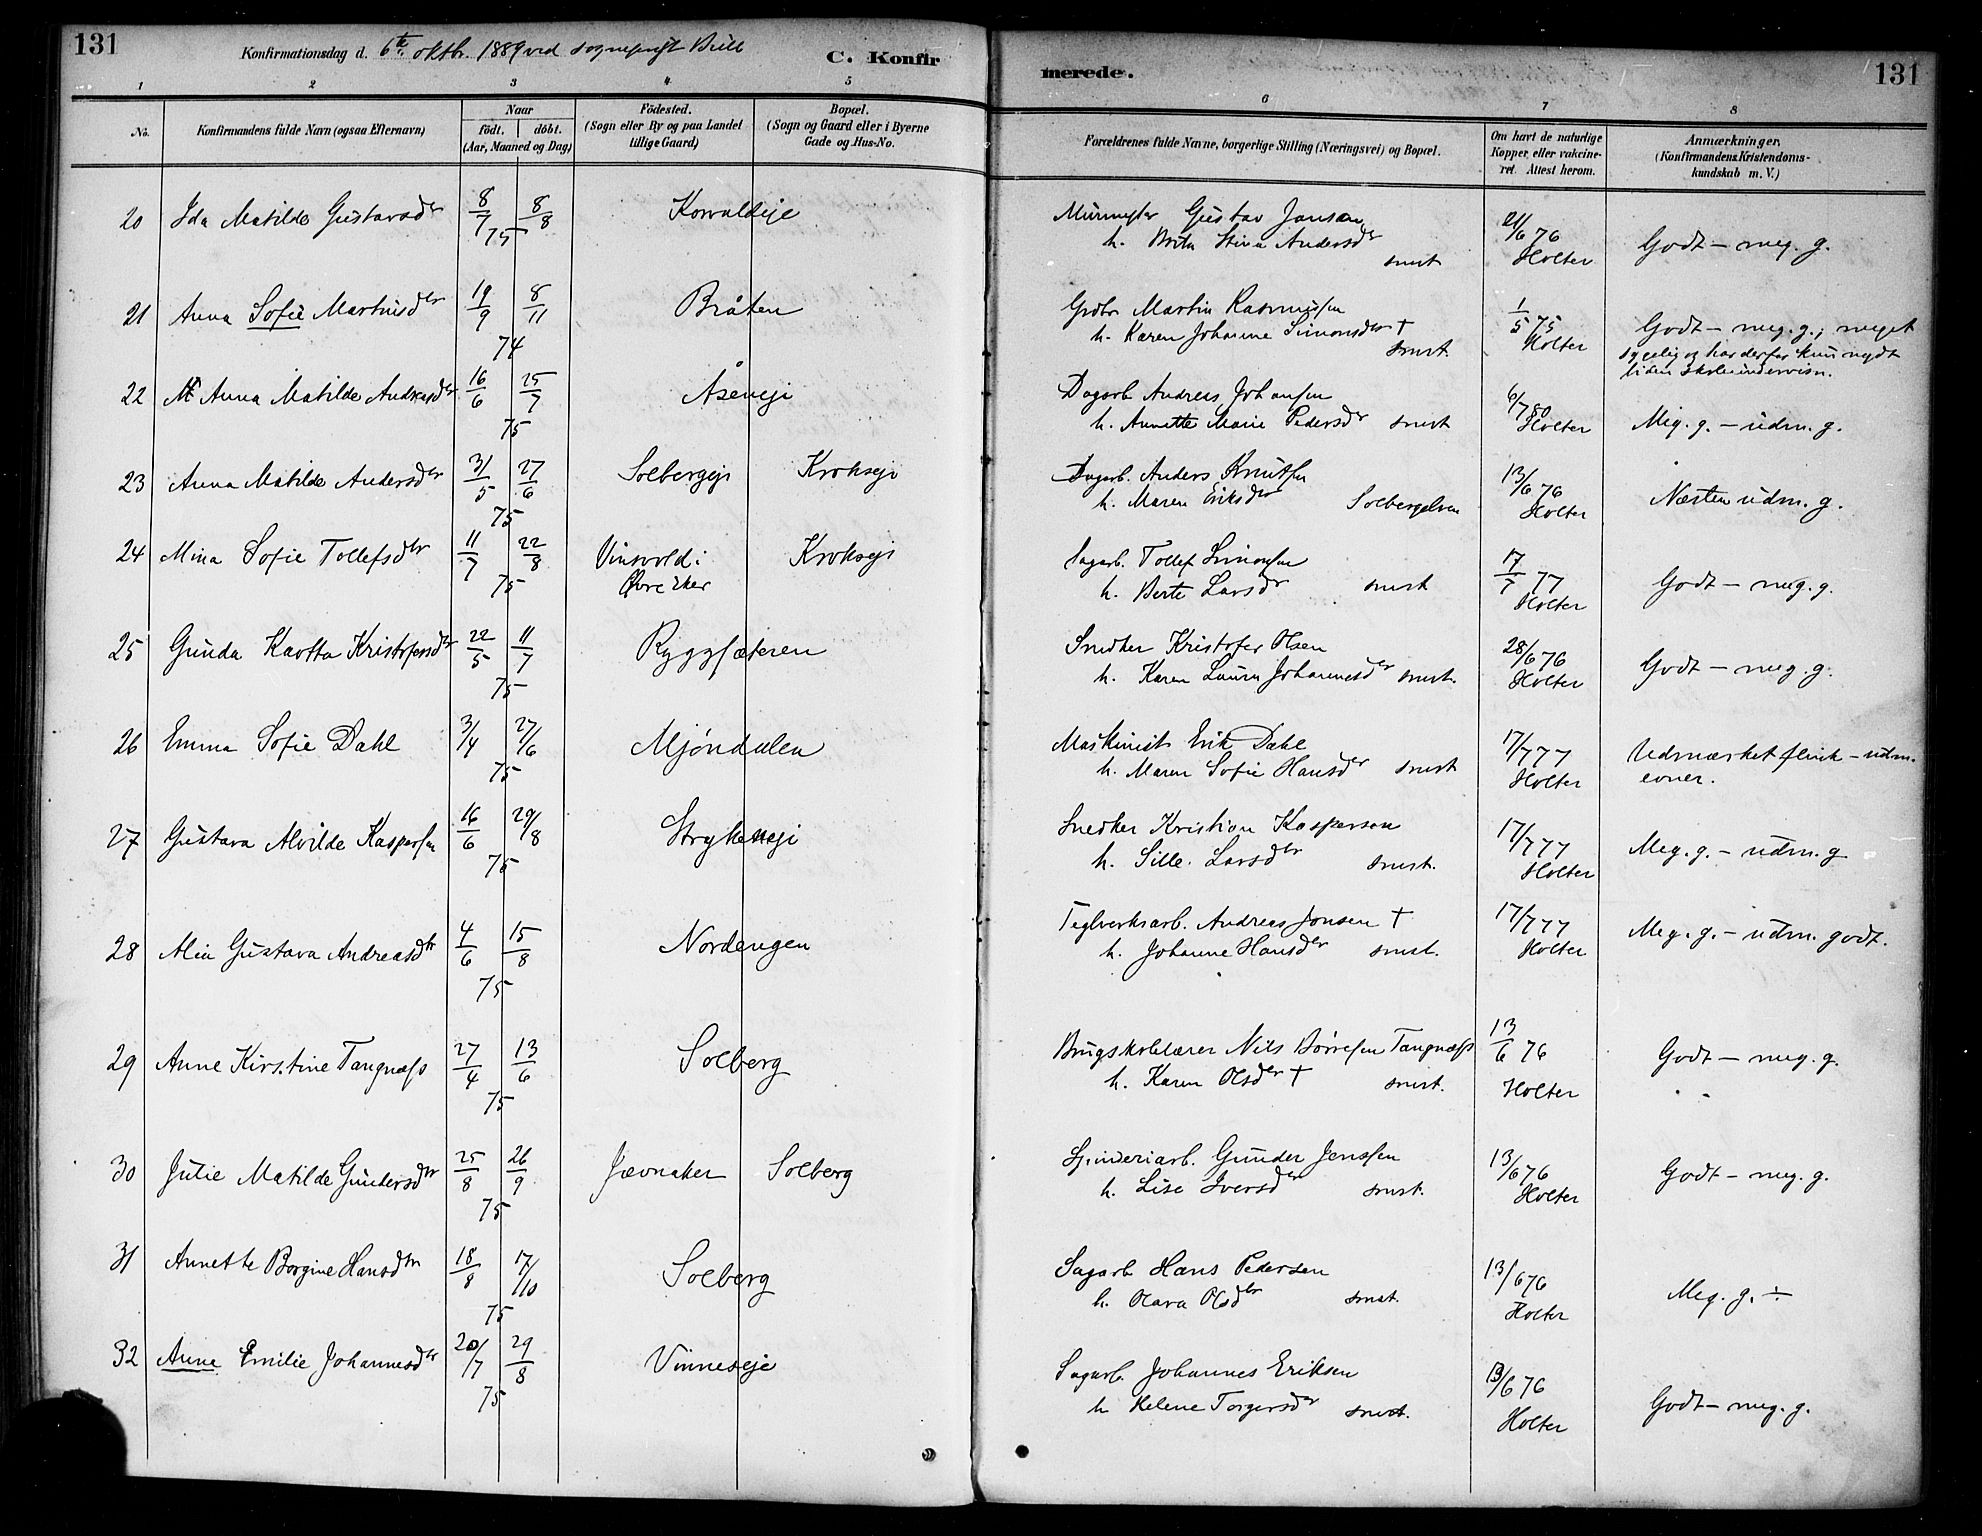 131
Konfirmationsdag d. 6te oktbr. 1889 ved sogneprest
C. Konfir
merede.
131
1 2 3 4 5 6 7 8
No.
Konfirmandens fulde Navn (ogsaa Efternavn)
Naar
födt. döbt.
(Aar, Maaned og Dag)
Födested.
(Sogn eller By og paa Landet
tillige Gaard)
Bopæl.
(Sogn og Gaard eller i Byerne
Gade og Hus-No.
Forældrenes fulde Navne, borgerlige Stilling (Næringsvei) og Bopæl.
Om havt de naturlige
Kopper, eller vakcine-
ret. Attest herom.
Anmærkninger.
(Konfirmandens Kristendoms-
kundskab m. V.)
20 Ida Matilde Gustavsdtr 8/7 8/8 Korvaldeje Gustav Jansen 21/6 76
75 h. Brita Stina Andersdtr smst. Holter Godt – meg. g.
21 Anna Sofie Martinsdtr 19/9 8/11 Bråten Grdbr. Martin Rasmussen 1/5 75
74 h. Karen Johanne Simonsdtr † smst. Holter Godt – meg. g.; meget
sygelig og har derfor kun nydt
liden skoleundervisn.
22 Anna Matilde Andreasdtr 16/6 25/7 Åseneje Dagarb. Andreas Johansen 6/7 80
75 h. Annette Marie Pedersdtr smst Holter Meg. g. – udm. g.
23 Anna Matilde Andersdtr 31/5 27/6 Solbergeje Krokseje Dagarb. Anders Knutsen 13/6 76
75 h. Maren Eriksdtr Solbergelven Holter Næsten udm. g.
24 Mina Sofie Tollefsdtr 11/7 22/8 Vinsvold i Krokseje Sagarb. Tollef Simonsen 17/7 77
75 Øvre Eker h. Berte Larsdtr smst Holter Godt – meg. g.
25 Gunda Kaotta Kristofersdtr 22/5 11/7 Ryggsæteren Snedker Kristofer Olsen 28/6 76
75 h. Karen Laura Johannesdtr smst. Holter Godt – meg. g.
26 Emma Sofie Dahl 3/4 27/6 Mjöndalen Maskinist Erik Dahl 17/7 77
75 h. Maren Sofie Hansdtr smst Holter Udmærket flink – udm.
evner.
27 Gustava Alvilde Kaspersen 16/6 29/8 Strykeneje Snedker Kristian Kaspersen 17/7 77
75 h. Sille Larsdtr smst. Holter Meg. g. – udm. g
28 Alin Gustava Andreasdtr 4/6 15/8 Nordengen Teglverksarb. Andreas Jonsen † 17/7 77
75 h. Johanne Hansdtr smst. Holter Meg. g. – udm. godt.
29 Anne Kirstine Tangnæss 27/4 13/6 Solberg Brugsskolelærer Nils Börresen Tangnæss 13/6 76
75 h. Karen Olsdtr † smst. Holter Godt – meg. g.
30 Julie Matilde Gundersdtr 25/8 26/9 Jævnaker Solberg Spinderiarb. Gunder Jenssen 13/6 76
75 h. Lise Iversdtr smst. Holter Godt – meg. g.
31 Annette Borgine Hansdtr 18/8 17/10 Solberg Sagarb Hans Pedersen 13/6 76
75 h. Olava Olsdtr smst. Holter Meg. g. ÷
32 Anna Emilie Johannesdtr 20/7 29/8 Vinneseje Sagarb. Johannes Eriksen 13/6 76
75 h Helene Torgersdtr smst. Holter Godt – meg. g.